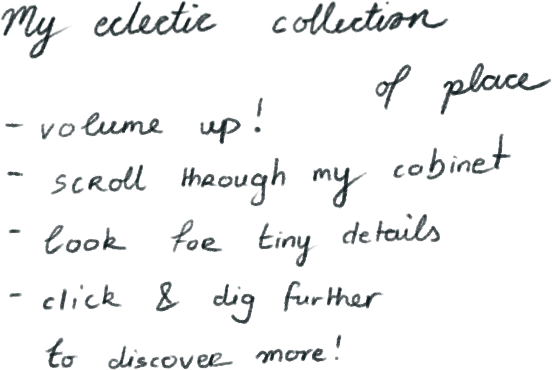 My eclectic collection
of place
- volume up!
- scroll through my cabinet
- look for tiny details
- click & dig further
to discover more!